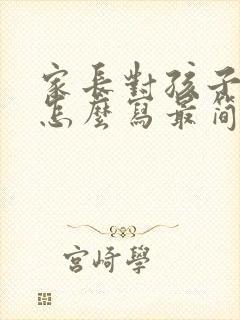 家長對孩子
怎麼寫最简
宮崎學